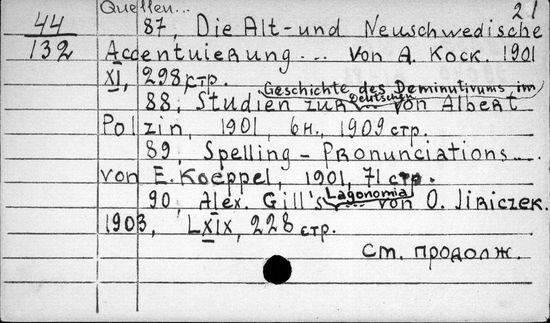 Quellen... 21
44 87, Die Alt- und Neuschwedische
132 Accentuierung... Von A. Kock. 1901
XI, 298 стр.
Geschichte des Deminutivums im
Deutschen
88, Studien zur ... von Albert
Polzin, 1901, 6н., 1909 стр.
89, Spelling-Pronunciations...
von E. Koeppel, 1901, 71 стр.
Lagonomia
90, Alex. Gill's ... von O. Jiriczek.
1903, LXIX, 228 стр.
См. продолж.